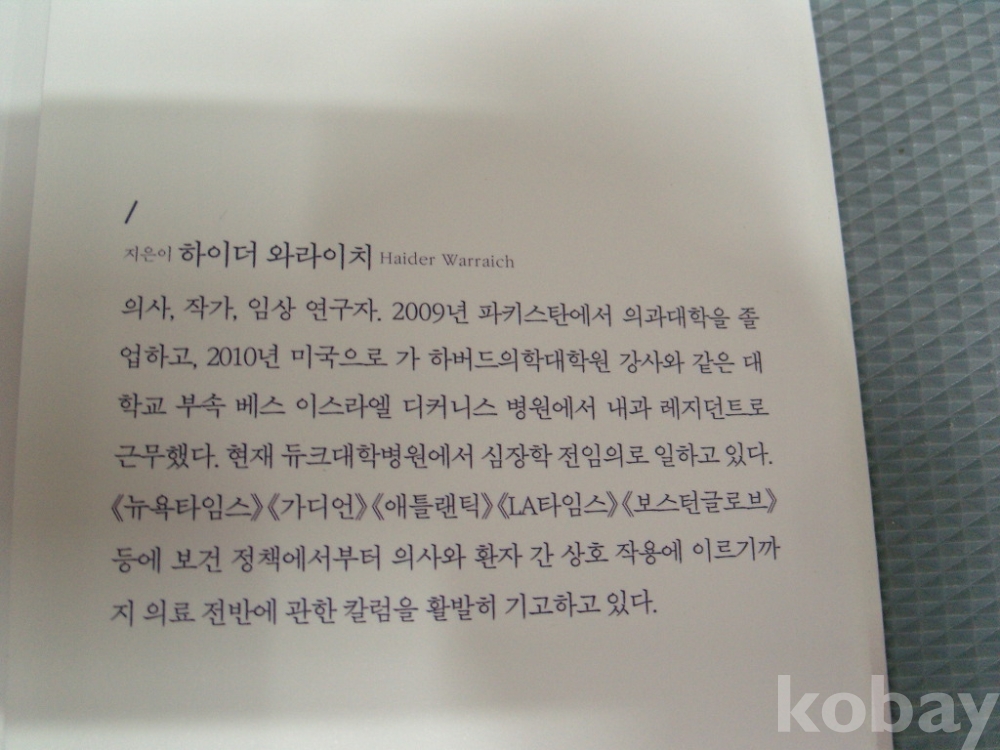 /
지은이 하이더 와라이치 Haider Warraich
의사, 작가, 임상 연구자. 2009년 파키스탄에서 의과대학을 졸
업하고, 2010년 미국으로 가 하버드의학대학원 강사와 같은 대
학교 부속 베스 이스라엘 디커니스 병원에서 내과 레지던트로
근무했다. 현재 듀크대학병원에서 심장학 전임의로 일하고 있다.
《뉴욕타임스》《가디언》《애틀랜틱》《LA타임스》《보스턴글로브》
등에 보건 정책에서부터 의사와 환자 간 상호 작용에 이르기까
지 의료 전반에 관한 칼럼을 활발히 기고하고 있다.
kobay